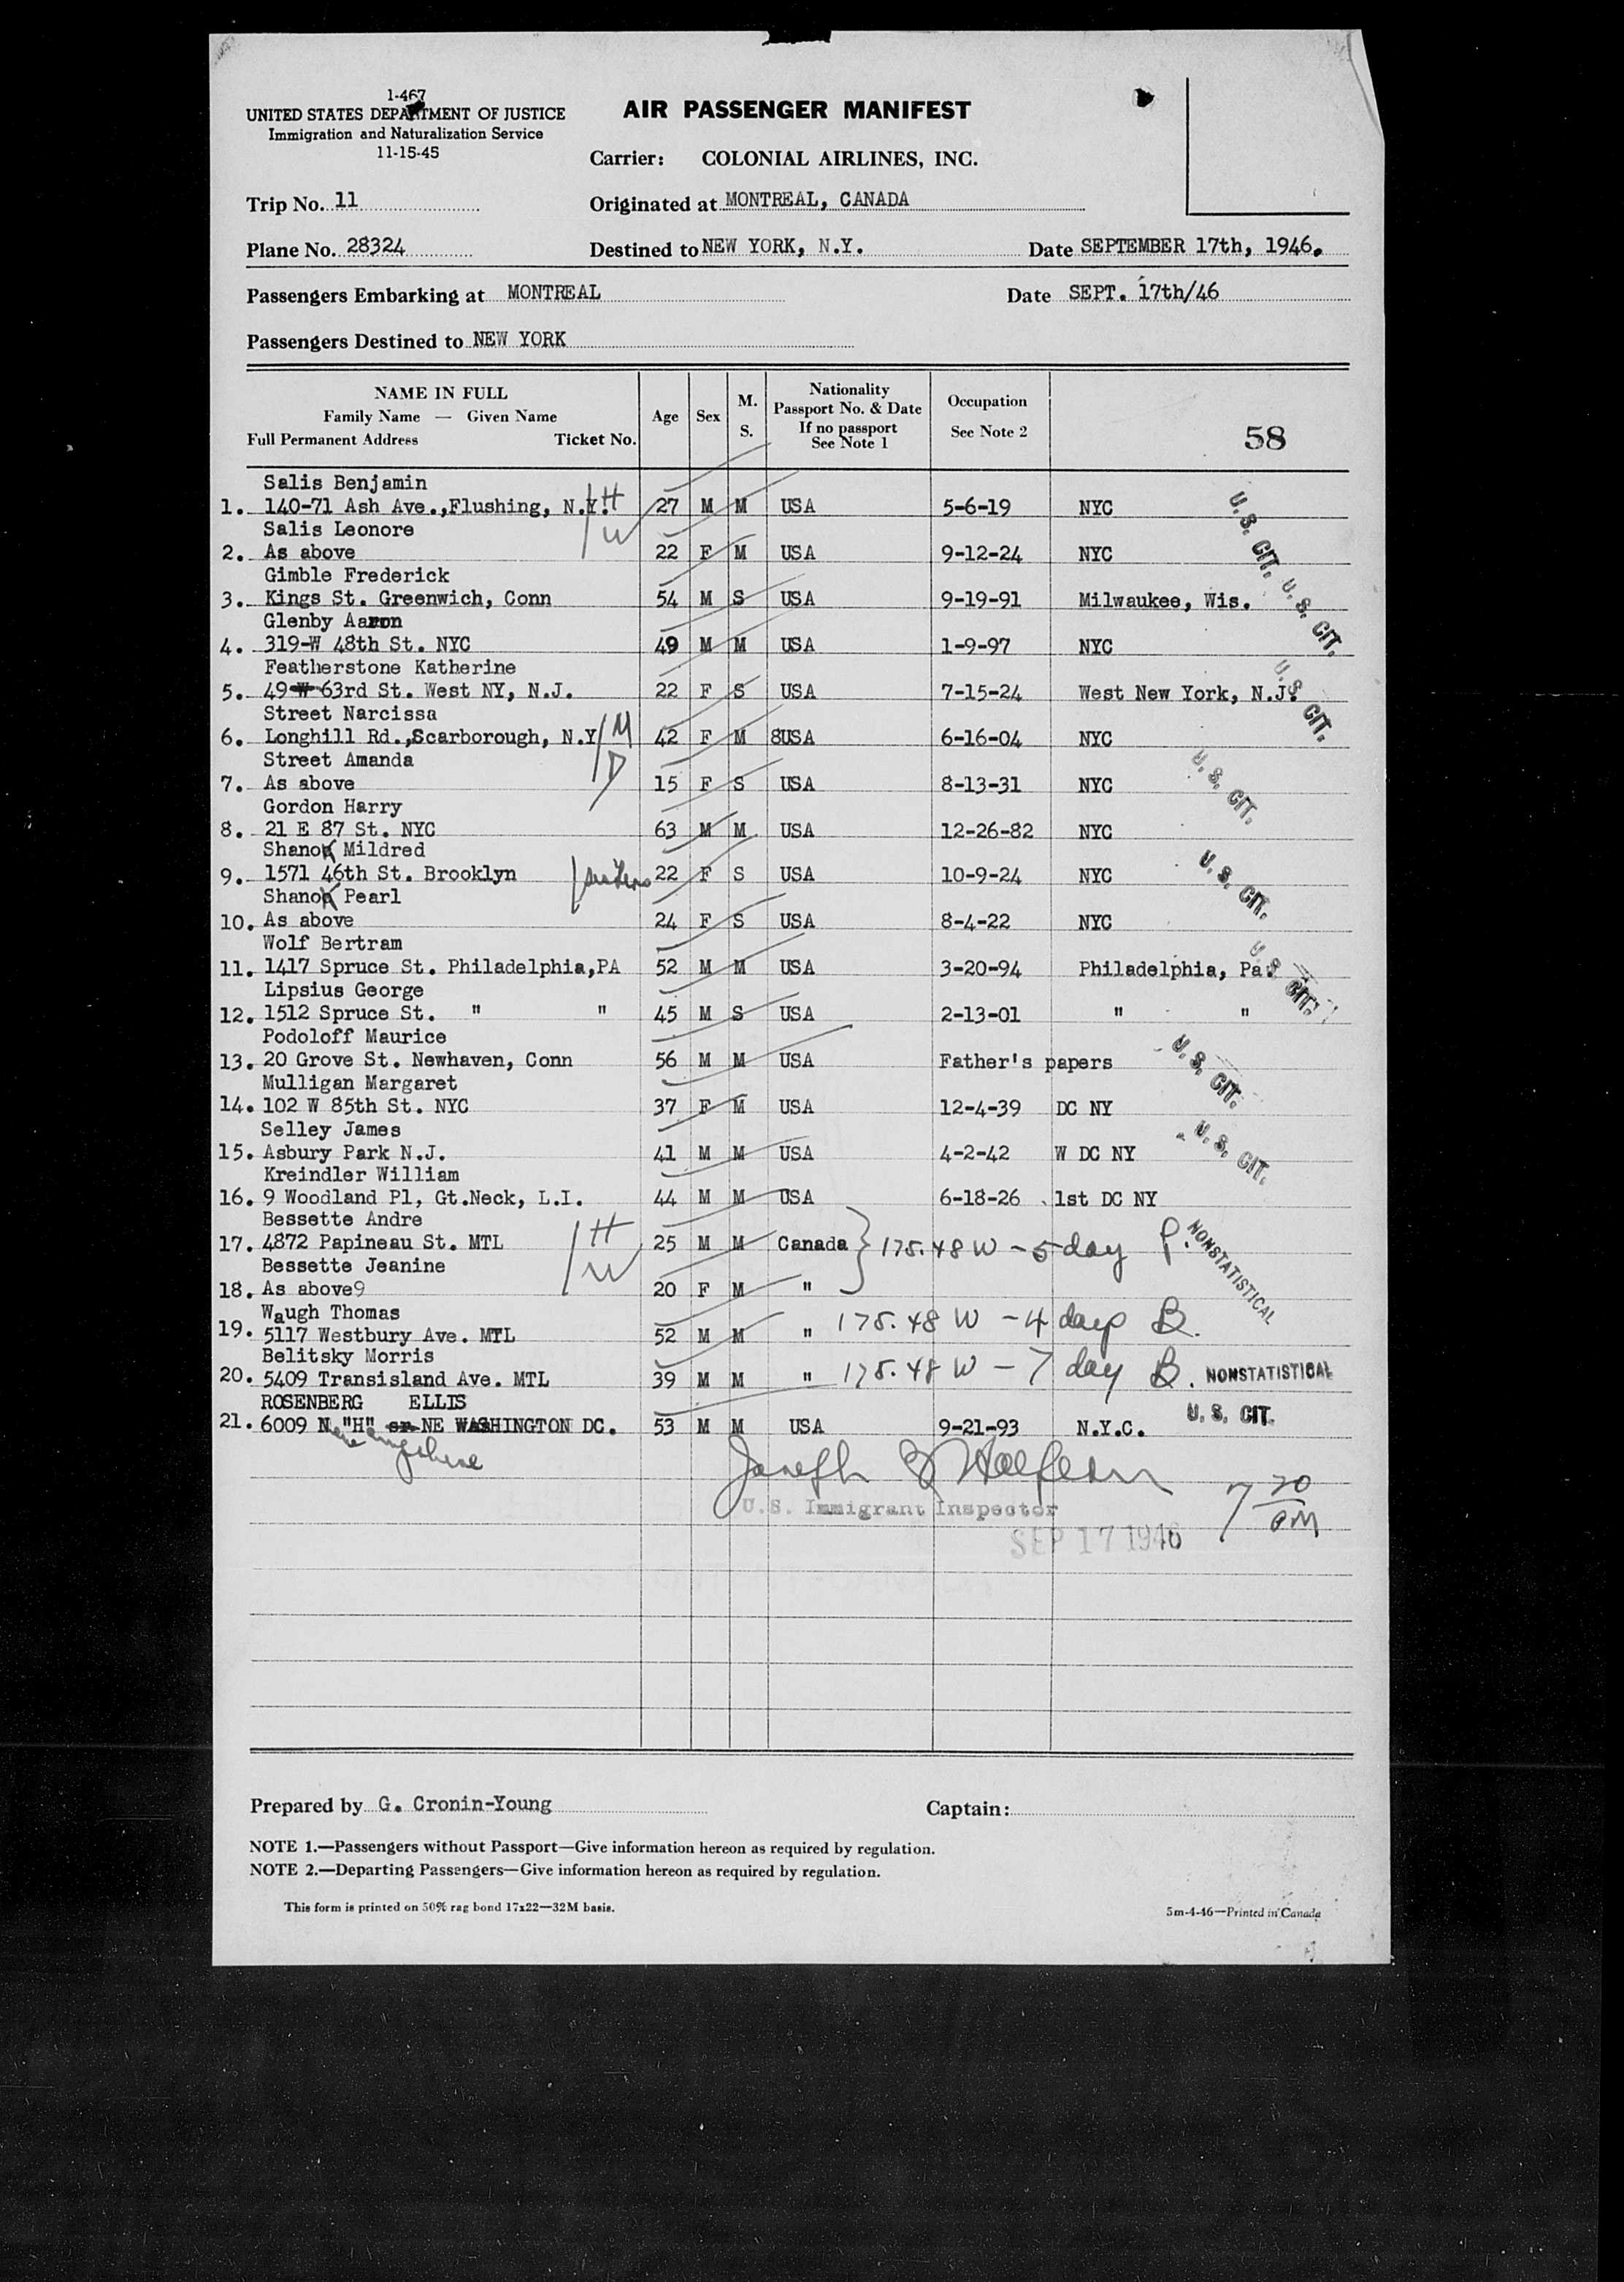 1-467
UNITED STATES DEPARTMENT OF JUSTICE
Immigration and Naturalization Service
11-15-45
AIR PASSENGER MANIFEST
Carrier: COLONIAL AIRLINES, INC.
Trip No. 11 Originated at MONTREAL, CANADA
Plane No. 28324 Destined to NEW YORK, N.Y. Date SEPTEMBER 17th, 1946.
Passengers Embarking at MONTREAL Date SEPT. 17th/46
Passengers Destined to NEW YORK
NAME IN FULL
Family Name — Given Name
Full Permanent Address Ticket No.
Age
Sex
M.
S.
Nationality
Passport No. & Date
If no passport
See Note 1
Occupation
See Note 2
58
Salis Benjamin
1. 140-71 Ash Ave.,Flushing, N.Y. H 27 M M USA 5-6-19 NYC U. S. CIT.
Salis Leonore
2. As above W 22 F M USA 9-12-24 NYC
Gimble Frederick
3. Kings St. Greenwich, Conn 54 M S USA 9-19-91 Milwaukee, Wis. U. S. CIT.
Glenby Aaron
4. 319-W 48th St. NYC 49 M M USA 1-9-97 NYC
Featherstone Katherine
5. 49 W 63rd St. West NY, N.J. 22 F S USA 7-15-24 West New York, N.J. U. S. CIT.
Street Narcissa
6. Longhill Rd.,Scarborough, N.Y M 42 F M 8USA 6-16-04 NYC
Street Amanda
7. As above D 15 F S USA 8-13-31 NYC U. S. CIT.
Gordon Harry
8. 21 E 87 St. NYC 63 M M USA 12-26-82 NYC
Shanok Mildred
9. 1571 46th St. Brooklyn sisters 22 F S USA 10-9-24 NYC U. S. CIT.
Shanok Pearl
10. As above 24 F S USA 8-4-22 NYC
Wolf Bertram
11. 1417 Spruce St. Philadelphia,PA 52 M M USA 3-20-94 Philadelphia, Pa. U. S. CIT.
Lipsius George
12. 1512 Spruce St. " " 45 M S USA 2-13-01 " "
Podoloff Maurice
13. 20 Grove St. Newhaven, Conn 56 M M USA Father's papers U. S. CIT.
Mulligan Margaret
14. 102 W 85th St. NYC 37 F M USA 12-4-39 DC NY
Selley James
15. Asbury Park N.J. 41 M M USA 4-2-42 W DC NY U. S. CIT.
Kreindler William
16. 9 Woodland Pl, Gt.Neck, L.I. 44 M M USA 6-18-26 1st DC NY
Bessette Andre
17. 4872 Papineau St. MTL H 25 M M Canada 175.48 W - 5 day P. NONSTATISTICAL
Bessette Jeanine
18. As above9 W 20 F M "
Waugh Thomas
19. 5117 Westbury Ave. MTL 52 M M " 175.48 W - 4 days B.
Belitsky Morris
20. 5409 Transisland Ave. MTL 39 M M " 175.48 W - 7 day B. NONSTATISTICAL
ROSENBERG ELLIS
21. 6009 N. "H" NE WASHINGTON DC. 53 M M USA 9-21-93 N.Y.C. U. S. CIT.
New Hampshire
Joseph Halpern
U.S. Immigrant Inspector
SEP 17 1946
7 20 PM
Prepared by G. Cronin-Young Captain:
NOTE 1.—Passengers without Passport—Give information hereon as required by regulation.
NOTE 2.—Departing Passengers—Give information hereon as required by regulation.
This form is printed on 50% rag bond 17x22—32M basis. 5m-4-46—Printed in Canada